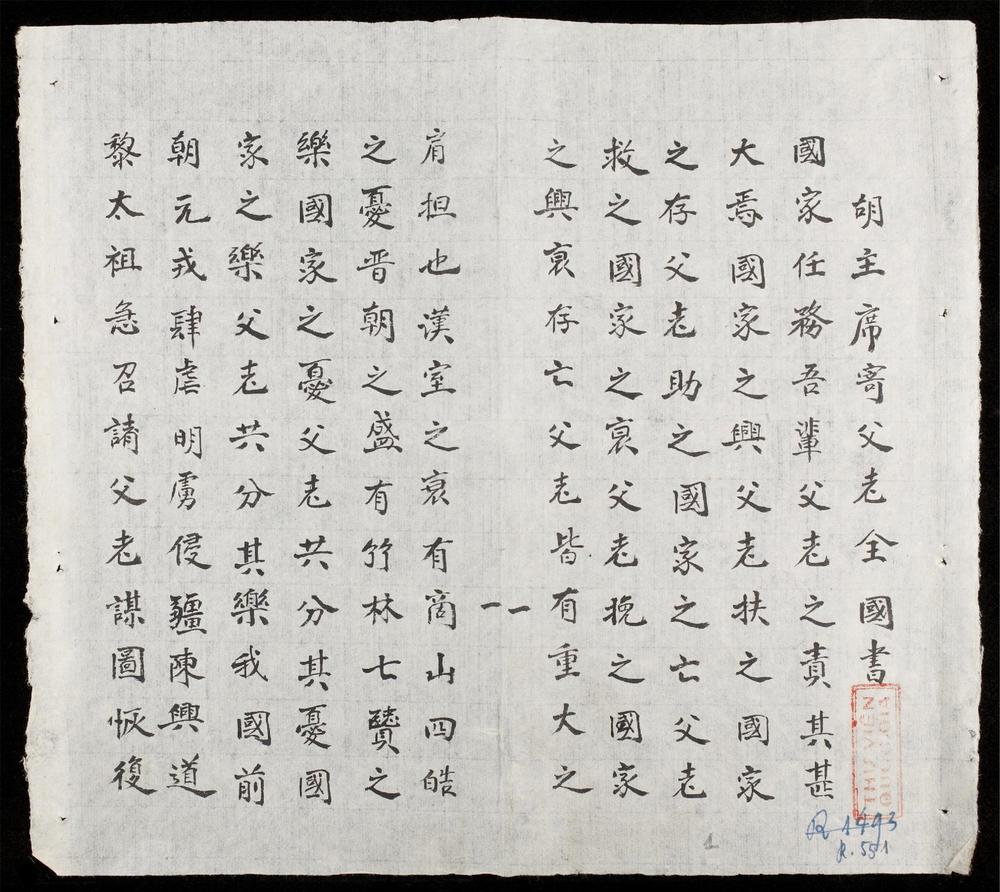 胡主席寄父老全國書
國家任務吾輩父老之責其甚
大焉國家之興父老扶之國家
之存父老助之國家之亡父老
救之國家之衰父老挽之國家
之興衰存亡父老皆有重大之
一一
肩担也漢室之衰有商山四皓
之憂晋朝之盛有竹林七贒之
樂國家之憂父老共分其憂國
家之樂父老共分其樂我國前
朝元戎肆虐明虜侵疆陳興道
黎太祖急召請父老謀圖恢復
THƯ VIỆN
QUỐC GIA
R 1493
R.551
1